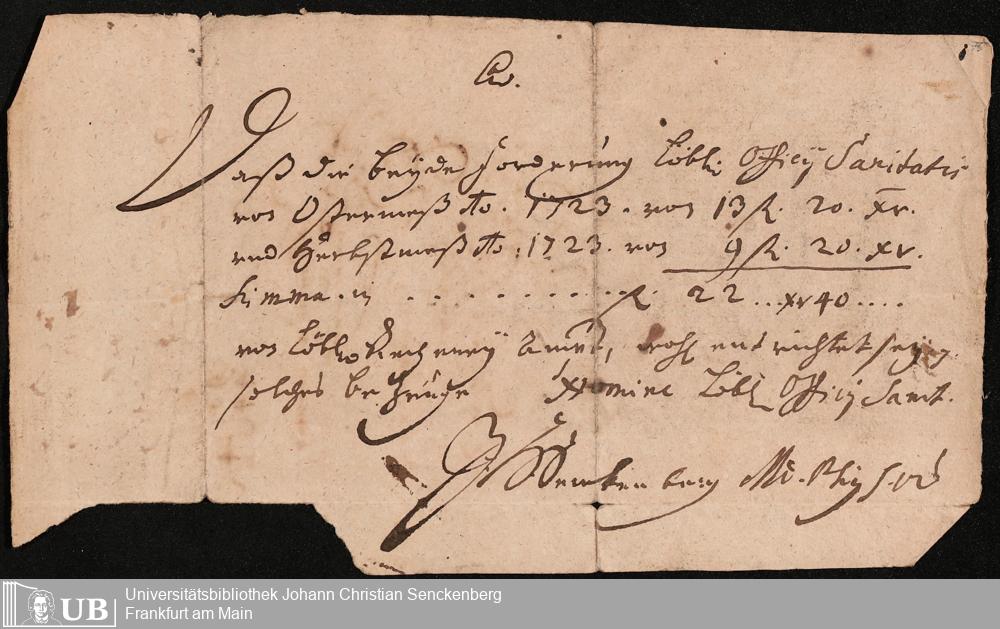 Daß die beyde Forderung Löbl. Officij Sanitatis
von Ostermeß Ao. 1723. von 13 fl. 20. xr.
und Herbstmeß Ao. 1723. von 9 fl. 20. xr.
Summa fl. 22 .. xr 40 ....
von Löbl. Recheney Ambt, entrichtet sey,
solches bezeuge Nomine Löbl. Officij Sanit.
Senckenberg MD. Physic
Universitätsbibliothek Johann Christian Senckenberg
Frankfurt am Main
UB